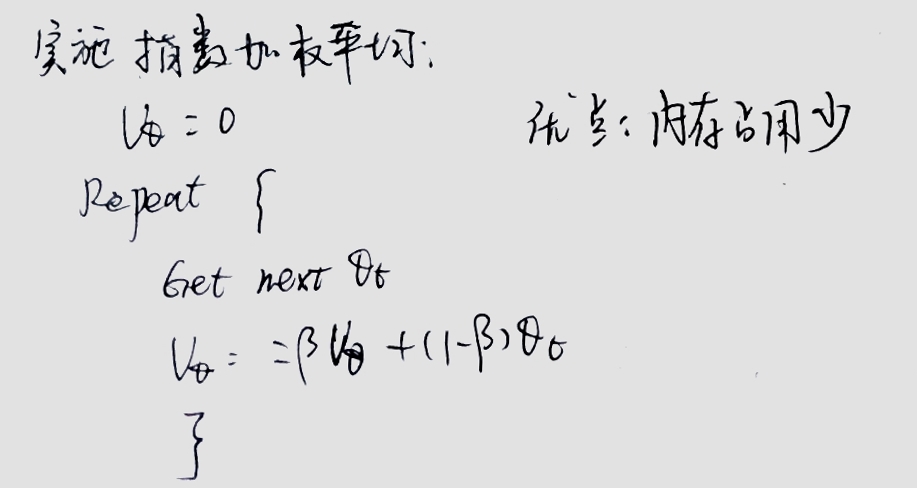 实施指数加权平均:
V_θ = 0
优点: 内存占用少
Repeat {
Get next θ_t
V_θ := βV_θ + (1-β)θ_t
}